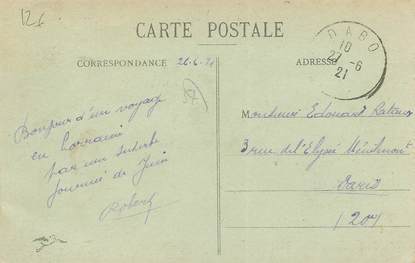 126
CARTE POSTALE
CORRESPONDANCE
26-6-21
ADRESSE
DABO
10
27 -6
21
Bonjour d'un voyage
en Lorraine
par une superbe
journée de Juin
Robert
Monsieur Edouard
3 rue de l'Elysée Ménilmont
Paris
(20e)